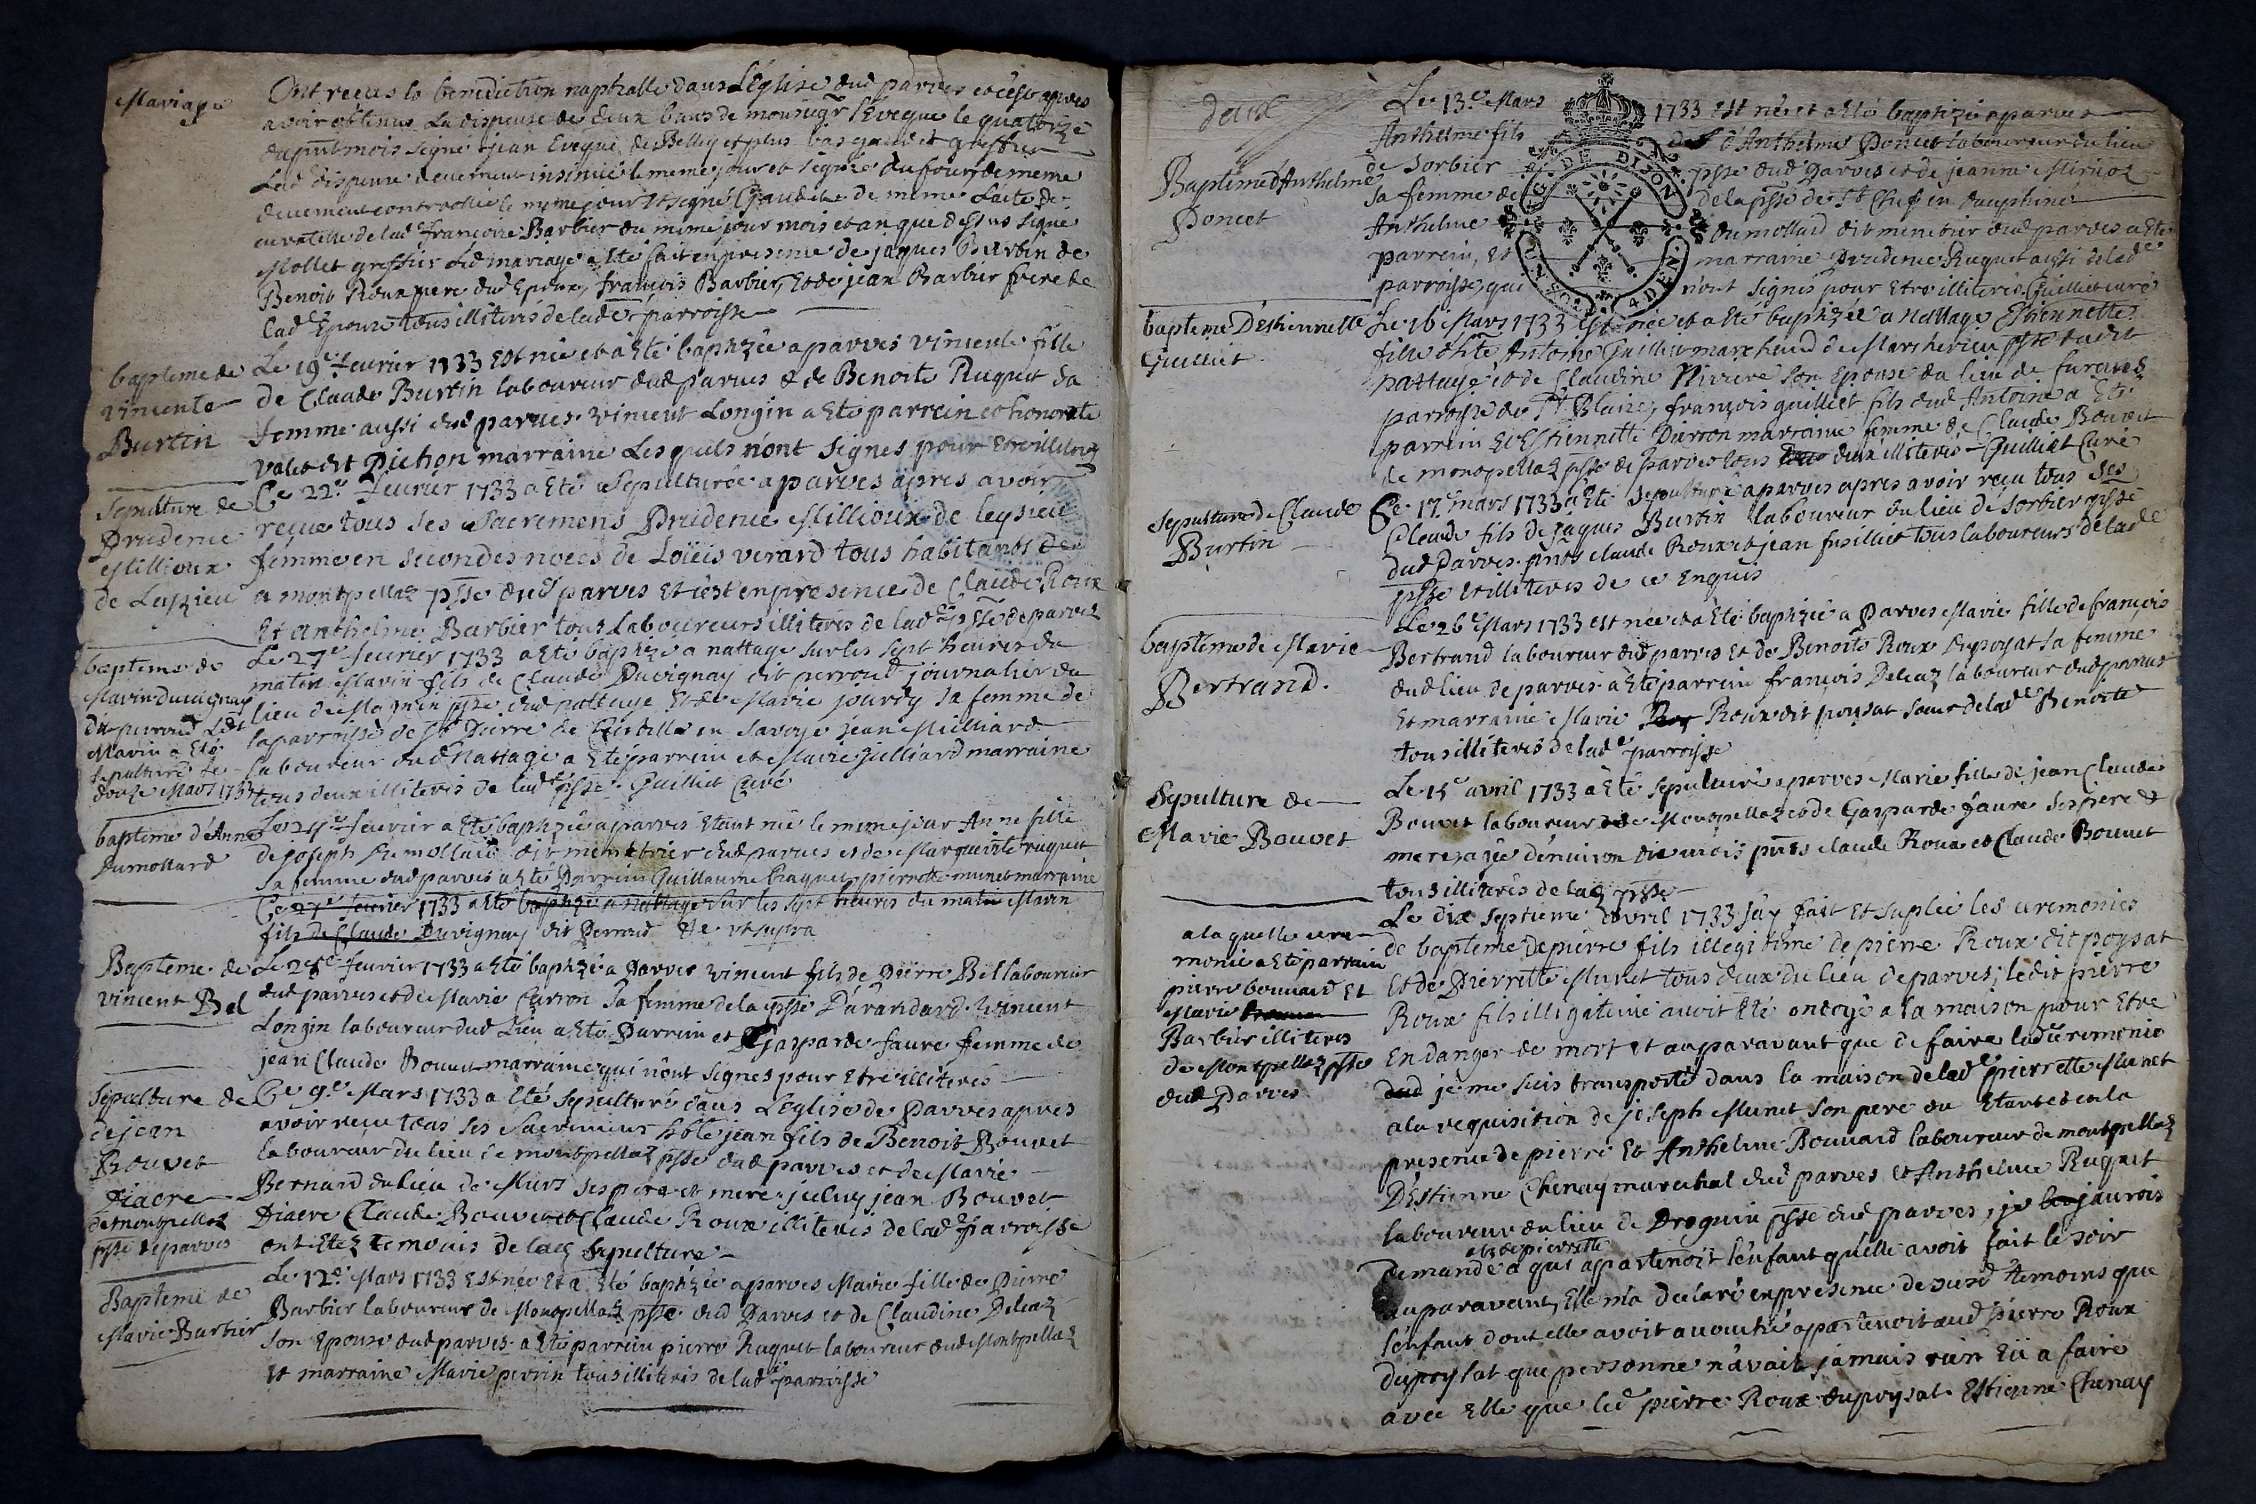 Mariage
Ont receus la benediction nuptialle dans L'Église dud parves et cest apres
avoir obtenus La dispense de deux bans de monseigr L'Eveque le quatorze
du pnt mois signé jean Eveque de Belley et plus bas greffier
Lad dispense devement insinué le meme jour et signée dufour de meme
devement controllée le meme jour
de lad françoise Barbier du mime jour mois et an que dessus signe
Mollet greffier Led mariage a Eté fait en presence de jaques Burtin de
Benoit Roux pere dud Epoux, françois Barbier, et de jean Barbier frere de
lad Epouse tous illiterés de lade parroisse
bapteme de
vincente
Burtin
Le 19e fevrier 1733 Est née et a Eté baptizée a parves vincente fille
de Claude Burtin laboureur dud parves & de Benoite Ruguet sa
femme aussi dud parves. vincent Longin a Eté parrein et honorate
valet dit Pichon marraine Lesquels n'ont signes pour Etre illiterez
Sepulture de
Prudence
Millioux
de Leyzieu
Ce 22e fevrier 1733 a Eté Sepulturée a parves apres avoir
reçue tous ses Sacremens Prudence Millioux de leysieu
femme en secondes noces de Loüis verard tous habitans
a montpellaz psse dud parves Et c'est en presence de Claude Roux
Et Anthelme Barbier tous Laboureurs illiterés de lade psse de parves
bapteme de
Marin Duvignay
dit perroud Ledt
Marin a Eté
sepulturé le
douze Mars 1733
Le 27e fevrier 1733 a Eté baptizé a nattage sur les sept heures du
matin Marin fils de Claude Duvignay dit perroud journalier du
lieu de psse dud nattage Et de Marie jourdy sa femme de
la parroisse de St Pierre de en Savoye jean Milliard
laboureur dud Nattage a Eté parrein et Marie Juilliard marraine
tous deux illiterés de lade psse Guilliet Curé
bapteme d'Anne
Dumollard
Le fevrier a Eté baptizée a parves Etant née le meme jour Anne fille
de joseph Dumollard dit menetrier dud parves et de Marguerite ruguet
sa femme dud parves a Eté Parrein Guillaume et pierrette munet marraine
Ce 27e fevrier 1733 a Eté baptizé a Nattage sur les sept heures du matin Marin
fils de Claude Duvignay dit Perroud de ut supra
Bapteme de
vincent Bel
Le fevrier 1733 a Eté baptizé a Parves vincent fils de Pierre Bel laboureur
dud parves et de Marie Carron sa femme de la psse vincent
Longin laboureur dud Lieu a Eté Parrein et Gasparde faure femme de
jean Claude Bouvet marraine qui n'ont signes pour Etre illiterés
Sepulture de
de jean
Bouvet
Diacre
de montpellaz
psse de parves
Ce 9e Mars 1733 a Eté Sepulturé dans L'eglise de Parves apres
avoir reçu tous ses Sacremens hble jean fils de Benoit Bouvet
laboureur du lieu de montpellaz psse dud parves et de Marie
Bernard du lieu de Murs ses pere et mere, jceluy jean Bouvet
Diacre Claude Bouvet et Claude Roux illiterés de lade Parroisse
ont Etez temoins de lade sepulture
Bapteme de
Marie Barbier
Le 12e Mars 1733 Est née Et a Eté baptizée a parves Marie fille de Pierre
Barbier laboureur de Montpellaz psse dud Parves et de Claudine Deleaz
son Epouse dud parves. a Eté parrein pierre Ruguet laboureur dud Montpellaz
et marraine Marie perrin tous illiterés de lade parroisse
deux
Baptême d'Anthelme
Poncet
Le 13e Mars 1733 est né et a Eté baptizé a parves
Anthelme fils d'Anthelme Poncet laboureur du lieu
de Sorbier psse dud Parves et de jeanne
sa femme de de la psse de St Chef en dauphiné
Anthelme Dumollard dit menetrier dud parves a Eté
parrein, et marraine Prudence Ruguet aussi de lade
parroisse, qui n'ont signés pour Etre illiterés Guilliet curé
GEN. DE DIJON
4 DEN.
bapteme D'Estiennette
Guilliet
Le 16 Mars 1733 est née et a Eté baptizée a Nattage Estiennette
fille d'hte Antoine Guilliet marchand de psse dudit
nattage et de Claudine Riviere son Epouse du lieu de
parroisse de St Blaise, françois guilliet fils dud Antoine a Eté
parrein Et Estiennette Pierron marraine femme de Claude Bouvet
de montpellaz psse de Parves tous deux illiterés - Guilliet Curé
Sepulture de Claude
Burtin
Ce 17e mars 1733 a Eté Sepulturé a parves apres avoir reçu tous ses
Claude fils de Jaques Burtin laboureur du lieu de Sorbier psse
dud Parves. pnts claude Roux et jean fusilliet tous laboureurs de lade
psse et illiteres de ce Enquis
bapteme de Marie
Bertrand.
Le 26e Mars 1733 est née et a Eté baptizée a Parves Marie fille de françois
Bertrand laboureur dud parves et de Benoite Roux sa femme
dud lieu de parves. a Eté parrein françois Deleaz laboureur dud parves
Et marraine Marie Roux dit poysat soeur de lade Benoite
tous illiterés de lade parroisse
Sepulture de
Marie Bouvet
Le 15e avril 1733 a Eté sepulturée a parves Marie fille de jean Claude
Bouvet laboureur de Montpellaz et de Gasparde faure ses pere &
mere, agée d'environ dix mois pnts claude Roux et Claude Bouvet
tous illiterés de lade psse
a la quelle cere-
monie a Eté parrein
pierre bonnard Et
Marie
Barbier illiteres
de Montpellaz psse
dud Parves
Le dix septieme avril 1733 j'ay fait Et suplée les ceremonies
de bapteme de pierre fils illegitime de pierre Roux dit poysat
et de Pierrette Munet tous deux du lieu de parves; ledit pierre
Roux fils illigitime avoit Eté ondoyé a la maison pour Etre
En danger de mort et auparavant que de faire lade ceremonie
je me suis transporté dans la maison de lade pierrette Munet
a la requisition de joseph Munet son pere ou Etant et en la
presence de pierre Et Anthelme Bonnard laboureur de montpellaz
D'Estienne Chenay marechal dud parves et Anthelme Ruguet
laboureur du lieu de Droguin psse dud parves, je j'aurois
a lade pierrette
demandé a qui apartenoit l'enfant qu'elle avoit fait le soir
auparavant, Elle m'a declaré en presence desusd temoins que
l'enfant dont elle avoit acouché apartenoit aud pierre Roux
du poysat que personne n'avait jamais rien Eü a faire
avec Elle que led pierre Roux du poysat Estienne Chenay